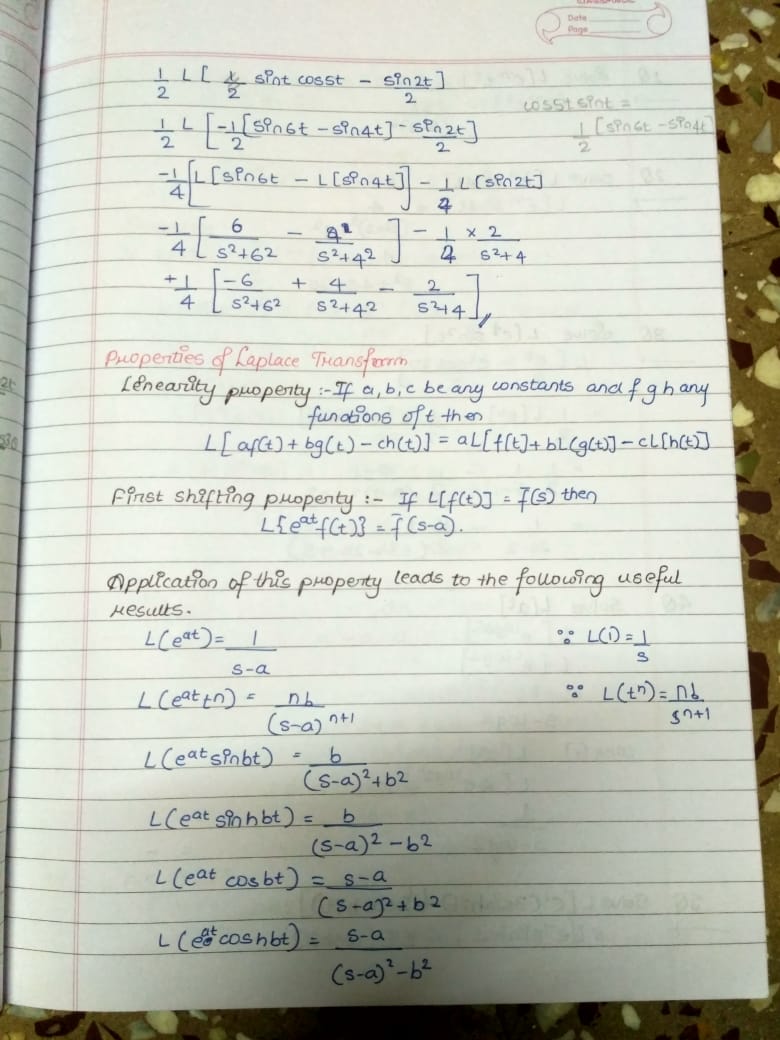 Date
Page
1/2 L [ 1/2 sint cos5t - sin2t/2 ]
cos5t sint =
1/2 L [ -1/2 [sin6t - sin4t] - sin2t/2 ]
1/2 [sin6t - sin4t
-1/4 [L[sin6t - L[sin4t]] - 1/4 L(sin2t]
-1/4 [ 6/s²+6² - 4/s²+4² ] - 1/4 × 2/s²+4
+1/4 [ -6/s²+6² + 4/s²+4² - 2/s²+4 ]
Properties of Laplace Transform
Linearity property :- If a, b, c be any constants and f g h any
functions of t then
L[ af(t) + bg(t) - ch(t)] = aL[f(t] + bL(g(t)] - cL[h(t)]
First shifting property :- If L[f(t)] = f̄(s) then
L{e^at f(t)} = f̄(s-a).
Application of this property leads to the following useful
results.
L(e^at) = 1/s-a ∵ L(1) = 1/s
L(e^at t^n) = n!/(s-a)^n+1 ∵ L(t^n) = n!/s^n+1
L(e^at sinbt) = b/(s-a)²+b²
L(e^at sinhbt) = b/(s-a)²-b²
L(e^at cosbt) = s-a/(s-a)²+b²
L(e^at coshbt) = s-a/(s-a)²-b²